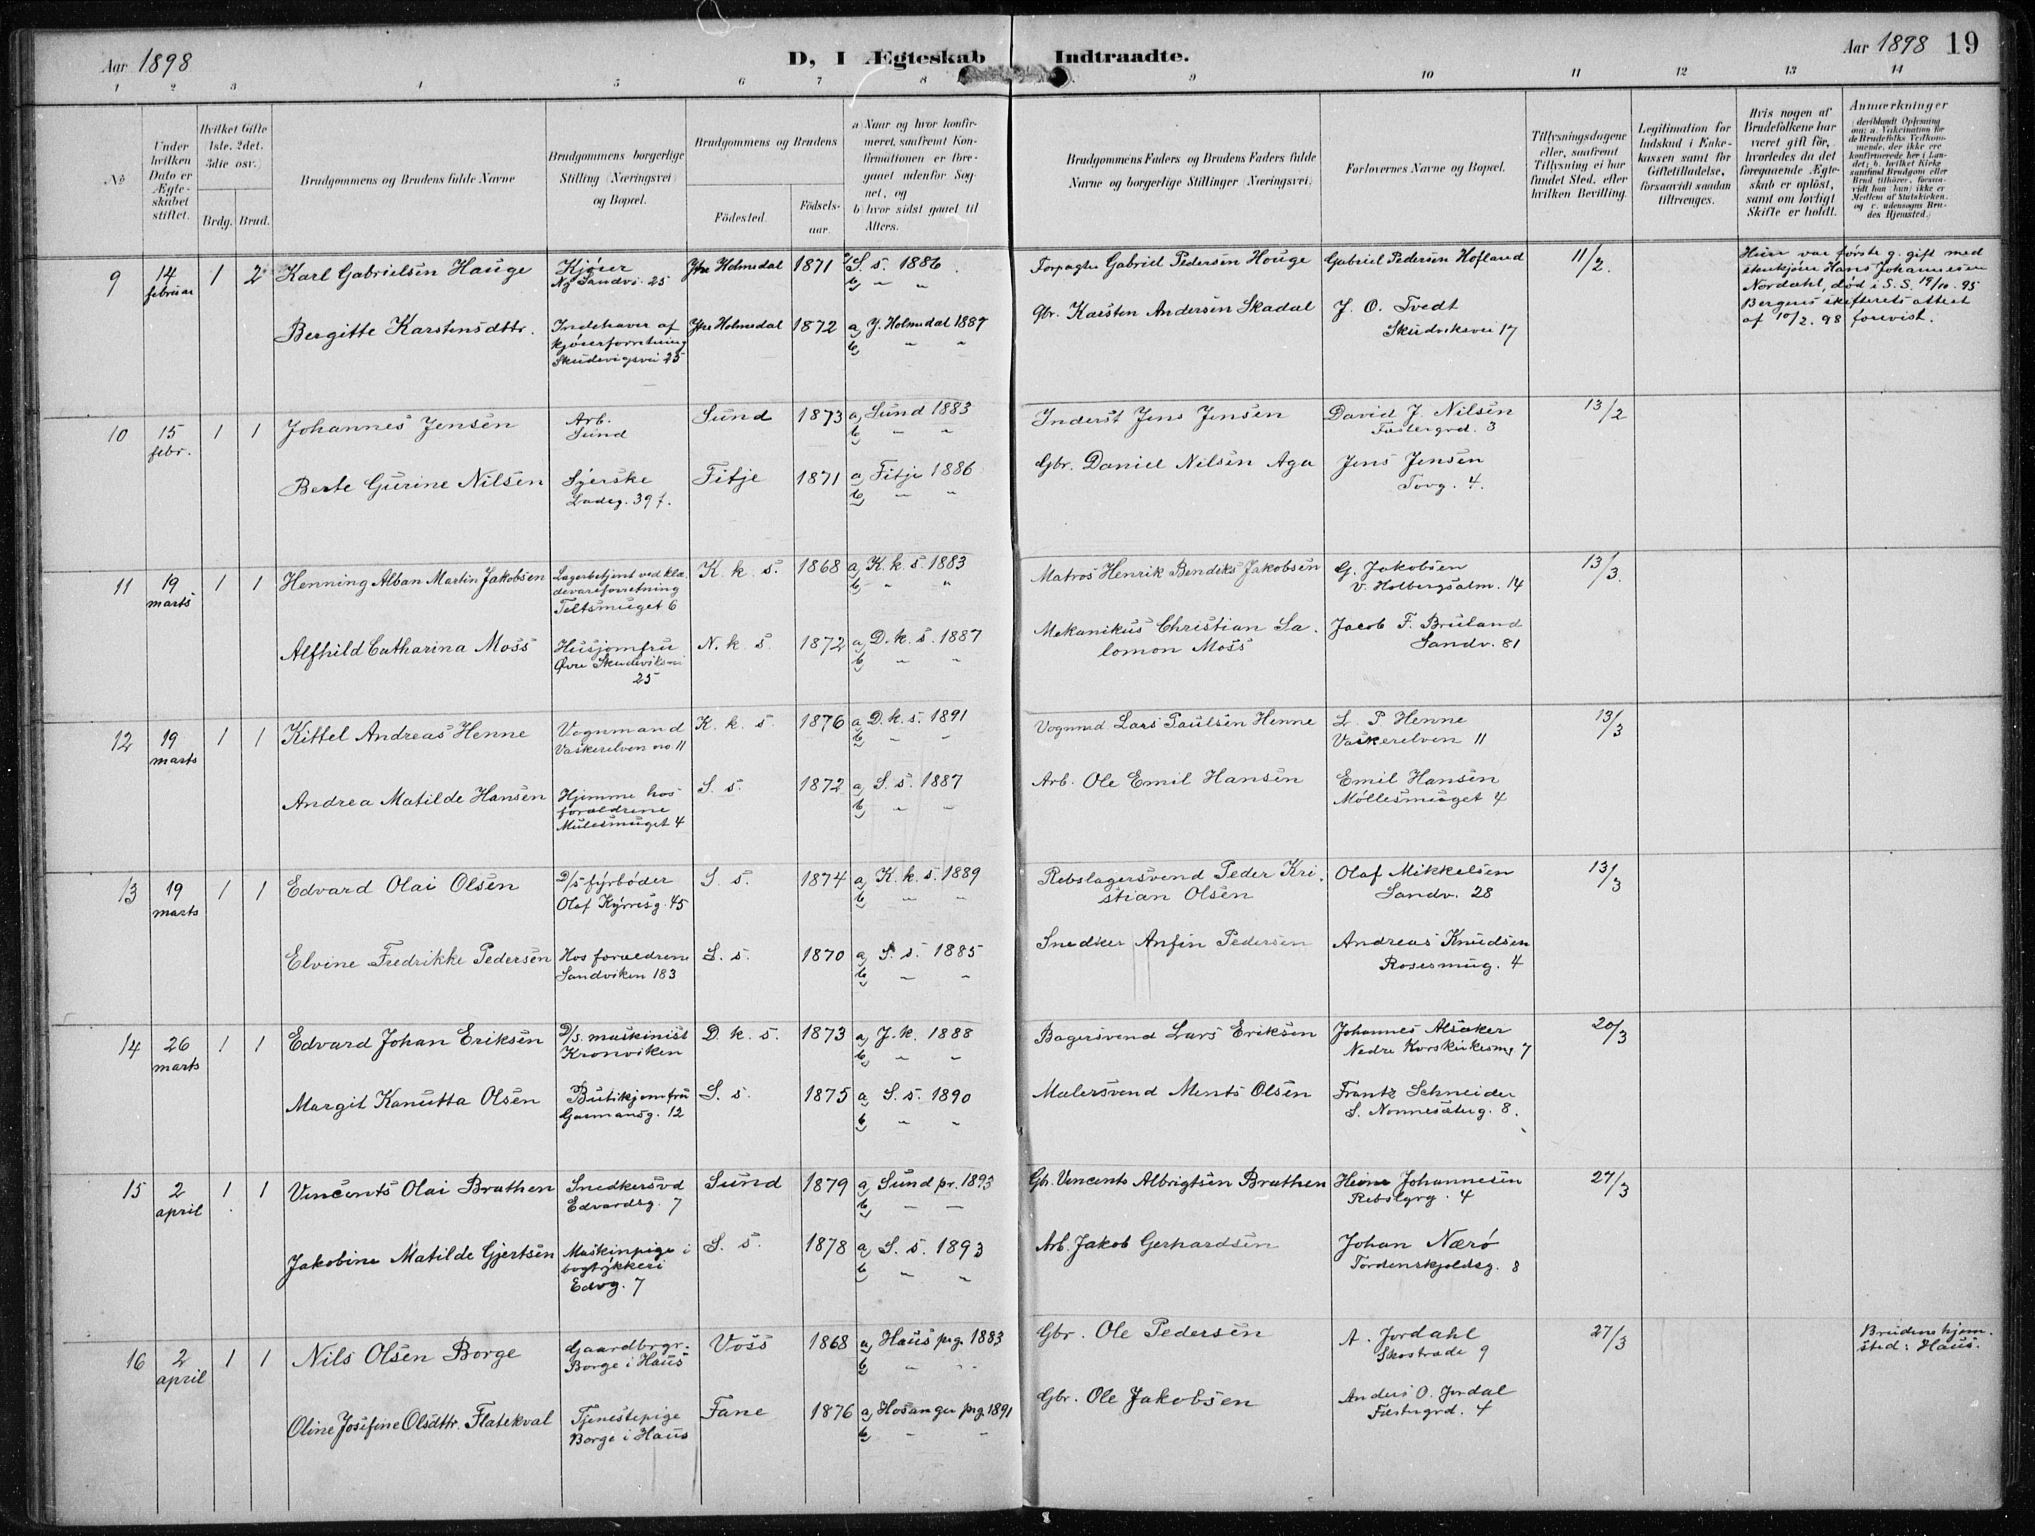 Aar 1898
D, I Ægteskab Indtraadte.
Aar 1898 19
1 2 3 4 5 6 7 8 9 10 11 12 13 14
No
Under hvilken Dato er Ægteskabet stiftet.
Hvilket Gifte 1ste, 2det, 3die osv.)
Brdg. Brud.
Brudgommens og Brudens fulde Navne
Brudgommens borgerlige Stilling (Næringsvei) og Bopæl.
Brudgommens og Brudens
Fødested.
Fødselsaar.
a) Naar og hvor konfirmeret, saafremt Konfirmationen er foregaaet udenfor Sognet, og
b) hvor sidst gaaet til Alters.
Brudgommens Faders og Brudens Faders fulde Navne og borgerlige Stillinger (Næringsvei)
Forlovernes Navne og Bopæl.
Tillysningsdagene eller, saafremt Tillysning ei har fundet Sted, efter hvilken Bevilling.
Legitimation for Indskud i Enkekassen samt for Giftetilladelse, forsaavidt saadan tiltrænges.
Hvis nogen af Brudefolkene har været gift før, hvorledes da det foregaaende Ægteskab er opløst, samt om lovligt Skifte er holdt.
Anmærkninger
(deriblandt Oplysning om: a. Vakcination for de Brudefolks Vedkommende, der ikke ere konfirmerede her i Landet; b. hvilket Kirkesamfund Brudgom eller Brud tilhører, forsaavidt han (hun) ikke er Medlem af Statskirken, og c. udensogns Brudes Hjemsted.)
9 14 februar 1 2 Karl Gabrielsen Hauge Kjører Ytre Holmedal 1871 a) S. s. 1886 Forpagter Gabriel Pedersen Houge Gabriel Pedersen Hofland 11/2.
Ny Sandvi. 25 b) " "
Hun var første g. gift med
stenkjører Hans Johannesen
Nordahl, død i S. S. 19/10 95
Bergens skifterets attest
af 10/2. 98 forevist.
Bergitte Karstensdttr. Indehaver af Ytre Holmedal 1872 a) Y. Holmedal 1887 Gbr. Karsten Andersen Skadal J. O. Tvedt
kjørerforretning b) " " Skudviksvei 17
Skudevigsvei 25
10 15 febr. 1 1 Johannes Jensen Arb. Sund 1873 a) Sund 1883 Inderst Jens Jensen David J. Nilsen 13/2
Sund b) " " Fæstergrd. 3
Berte Gurine Nilsen Syerske Fitje 1871 a) Fitje 1886 Gbr. Daniel Nilsen Aga Jens Jensen
Ladeg. 39 f. b) " " Torvg. 4.
11 19 marts 1 1 Henning Alban Martin Jakobsen Lagerbetjent ved klæ K. k. s. 1868 a) K. k. s. 1883 Matros Henrik Bendiks Jakobsen G. Jakobsen 13/3.
devareforretning b) " " V. Holbergsalm. 14
Teltsmuget 6
Alfhild Catharina Moss Husjomfru N. k. s. 1872 a) D. k. s. 1887 Mekanikus Christian Sa. Jacob F. Bruland
Øvre Skudeviksvei b) " " lomon Moss Sandv. 81
25
12 19 marts 1 1 Kittel Andreas Henne Vognmand K. k. s. 1876 a) D. k. s. 1891 Vognmd Lars Paulsen Henne L. P Henne 13/3
Vaskerelven no. 11 b) " " Vaskerelven 11
Andrea Matilde Hansen Hjemme hos S. s. 1872 a) S. s. 1887 Arb. Ole Emil Hansen Emil Hansen
forældrene b) " " Møllesmuget 4
Mulesmuget 4
13 19 marts 1 1 Edvard Olai Olsen D/S fyrbøder S. s. 1874 a) K. k. s. 1889 Rebslagersvend Peder Kri. Olaf Mikkelsen 13/3
Olaf Kyrresg. 45 b) " " stian Olsen Sandv. 28
Elvine Fredrikke Pedersen Hos forældrene S. s. 1870 a) S. s. 1885 Snedker Anfin Pedersen Andreas Knudsen
Sandviken 183 b) " " Rosesmug. 4
14 26 marts 1 1 Edvard Johan Eriksen D/S. maskinist D. k. s. 1873 a) J. k. 1888 Bagersvend Lars Eriksen Johannes Alsaker 20/3
Kronviken b) " " Nedre Korskirkesmg 7
Margit Kanutta Olsen Butikjomfru S. s. 1875 a) S. s. 1890 Malersvend Ments Olsen Frantz Schneider
Garmansg. 12 b) " " S. Nonnesæterg. 8.
15 2 april 1 1 Vincents Olai Brathen Snedkersvd Sund 1879 a) Sund pr. 1893 Gb. Vincents Albrigtsen Brathen Heine Johannesen 27/3
Edvardsg. 7 b) " " Rebslgrg. 4
Jakobine Matilde Gjertsen Maskinpige i S. s 1878 a) S. s. 1893 Arb. Jakob Gerhardsen Johan Nærø
bogtykkeri b) " " Tordenskjoldsg. 8
Edvg. 7
16 2 april 1 1 Nils Olsen Borge Gaardbrgr. Voss 1868 a) Haus prg. 1883 Gbr. Ole Pedersen A. Jordahl 27/3 Brudens hjem.
Borge i Haus b) " " Skostræde 9 sted: Haus.
Oline Josefine Olsdttr. Flatekval Tjenestepige Fane 1876 a) Hosanger prg. 1891 Gbr. Ole Jakobsen Anders O. Jordal
Borge i Haus b) " " Fæstergrd. 4